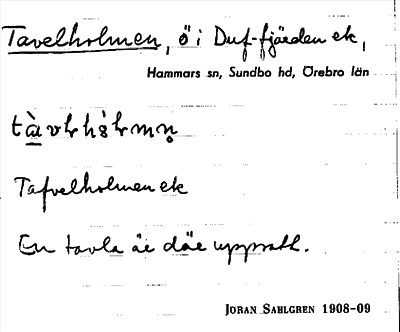 Tavelholmen, ö i Duf-fjärden ek,
Hammars sn, Sundbo hd, Örebro län
Tafvelholmen ek
En tavla är där uppsatt.
JÖRAN SAHLGREN 1908-09